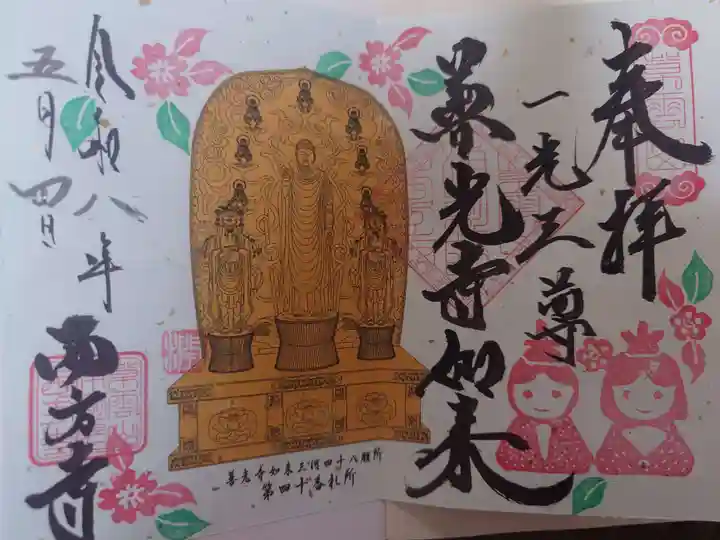 奉拝
一光三尊
善光寺如来
善光寺如来三河四十八願所
第四十番札所
令和八年
五月四日
西方寺